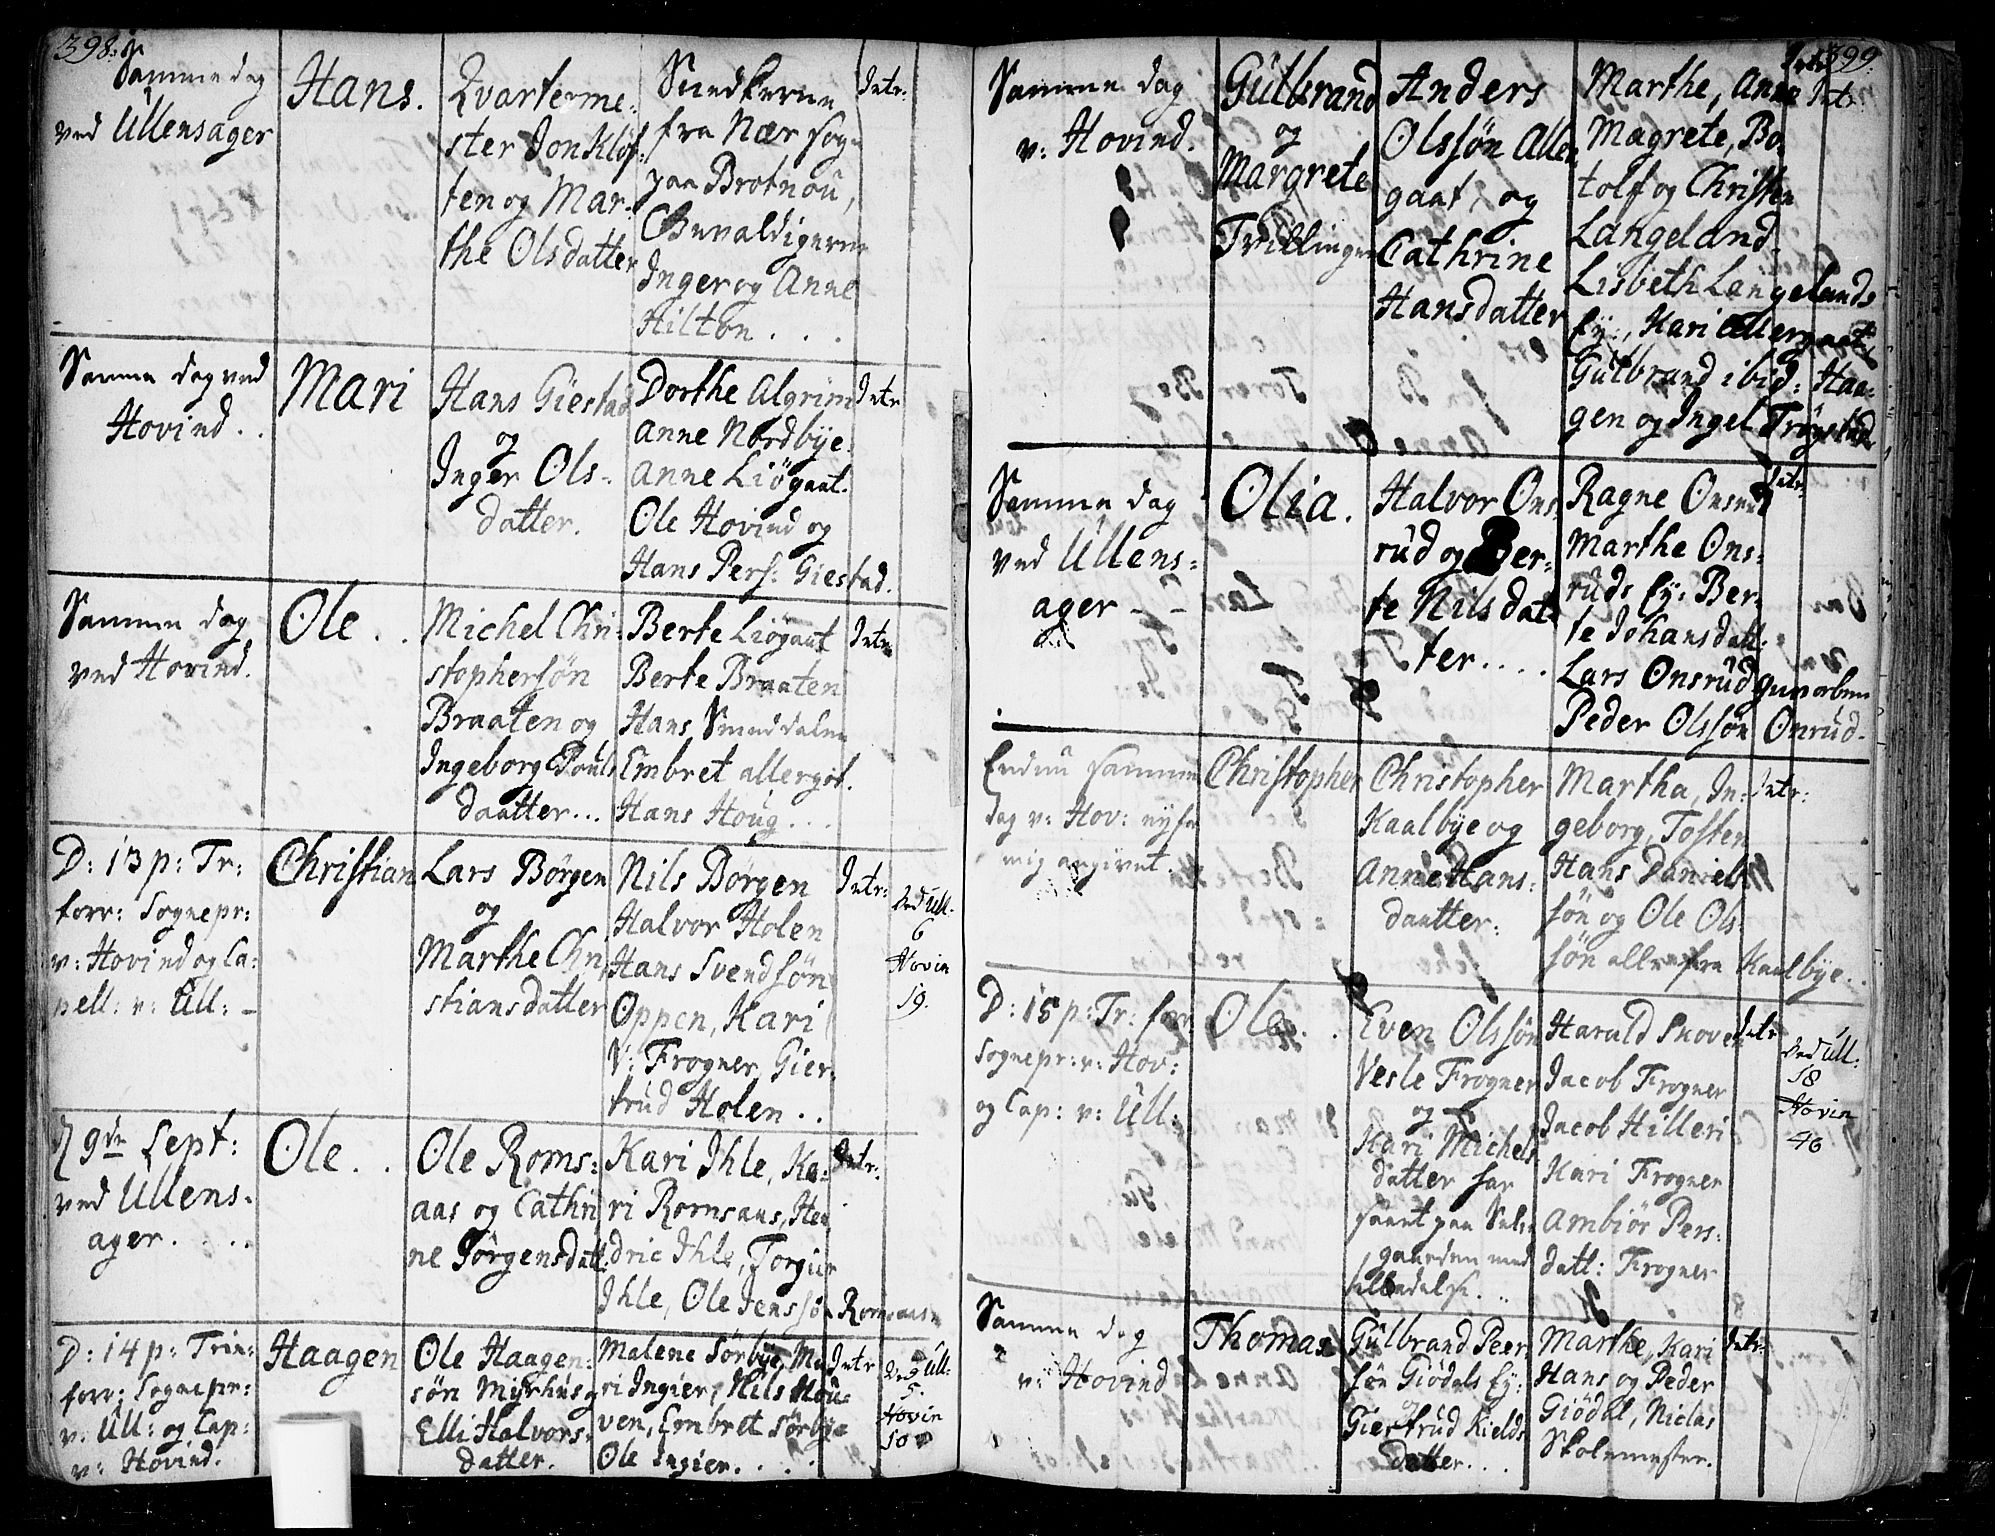 398.
Samme dag
ved Ullensager
Hans.
Qvarterme-
ster Jon Kløf-
ten og Mar-
the Olsdatter
Smedkerne
fra Nær sogn
paa Brotnou,
Gevaldigerne
Inger og Anne
Hilton . . .
Intr:
Samme dag ved
Hovind . .
Mari
Hans Giestad
og
Inger Ols-
datter.
Dorthe Algrim
Anne Nordbÿe
Anne Liøgaat.
Ole Hovind og
Hans Pers: Giestad.
Intr
Samme dag
ved Hovind.
Ole . .
Michel Chri-
stophersøn
Braaten og
Ingeborg Pouls
daatter...
Berte Liøgaat
Berte Braaten
Hans Smeddalen
Embret allergot.
Hans Houg . . .
Intr
D: 13 p: Tr:
forr: Sognepr:
v: Hovind og Ca-
pell: v: Ull: -
Christian
Lars Børgen
og
Marthe Chri
stiansdatter
Nils Børgen
Halvor Holen
Hans Svendsøn
Oppen, Kari
V: Frogner, Gier-
trud Holen . .
Intr:
Ved Ull:
6
Hovin
19.
9de Sept:
ved Ullens-
ager. . . .
Ole . .
Ole Roms-
aas og Cathri
ne Jørgensdatt:
Kari Ihle, Ka-
ri Romsaas, Hen
dric Ihle, Torgiur
Ihle, Ole Jenssøn Romsaas
Intr:
D: 14 p: Trin:
forr: Sognepr:
v: Ull: og Cap:
v: Hovind.
Haagen
Ole Haagen-
søn Myrhus og
Elli Halvors-
datter.
Malene Sørbye, Ma
ri Ingier, Nils Hou-
ven, Embret Sørbye
Ole Ingier. . . .
Intr
Ved Ull:
5.
Hovin
10
399.
Samme dag
v: Hovind.
Gulbrand
og
Margrete
Tvillinger
Anders
Olssøn Aller
gaat, og
Cathrine
Hansdatter
Marthe, Anne
Magrete, Bo-
tolf og Christen
Langeland
Lisbeth Langelands
Ey:, Kari Allergaat
Gulbrand ibid: Haa-
gen og Ingel Trøgstad
Intr
Samme dag
ved Ullens-
ager - -
Olia.
Halvor Ons
rud og Ber-
te Nilsdat
ter. . . .
Ragne Onsrud
Marthe Ons-
ruds Ey: Ber-
te Johansdatt:
Lars Onsrud Gunorben
Peder Olssøn Onrud.
Intr:
Endnu samme
dag v: Hov:
mig angivet.
Christopher
Christopher
Kaalbye og
Anne Hans-
daatter.
Martha, In-
geborg, Tosten
Hans Daniels
søn og Ole Ols-
søn alle fra Kaalbye. .
Intr:
D: 15 p: Tr: forr
Sognepr: v: Hov:
og Cap: v: Ull:
Ole . .
Even Olssøn
Vesle Frogner
og
Kari Michels
datter har
staaet paa
gaarden med
Harald Skoven
Jacob Frogner
Jacob Hilleri
Kari Frogner
Ambiør Pers-
datt: Frogner
Intr
Ved Ull:
18
Hovin
40
Samme dag
v: Hovind
Thomas
Gulbrand Peer
søn Giødals Ey:
og
Giertrud Kields
datter. . . .
Marthe, Kari
Hans og Peder
Giødal, Niclas
Skolemester.
Intr: